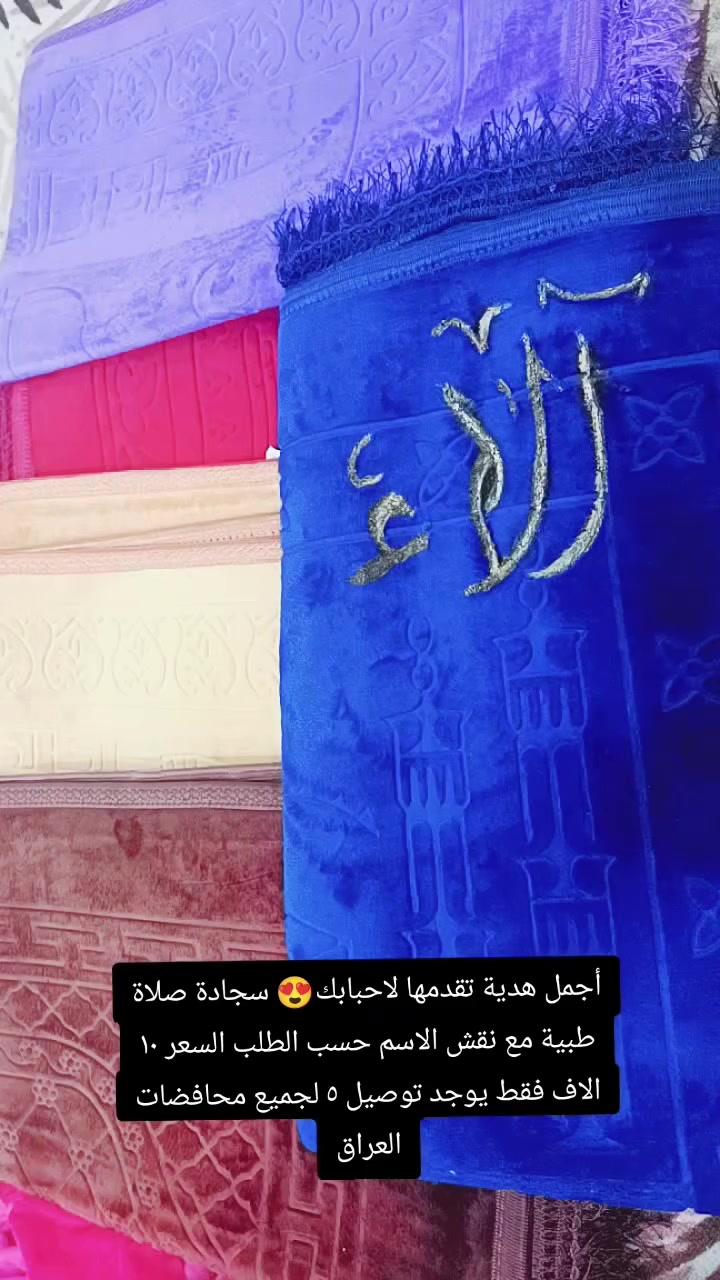 آلاء
أجمل هدية تقدمها لاحبابك😍 سجادة صلاة
طبية مع نقش الاسم حسب الطلب السعر ١٠
الاف فقط يوجد توصيل ٥ لجميع محافضات
العراق